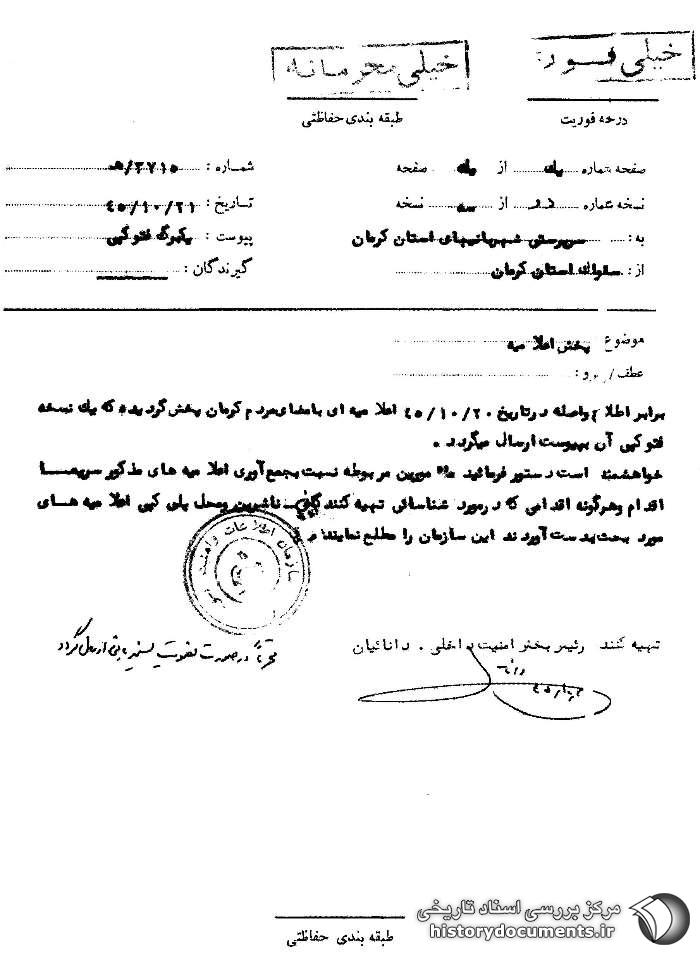 خیلی فوری
خیلی محرمانه
درجه فوریت
طبقه بندی حفاظتی
صفحه شماره یك از یك صفحه
شماره : ۳۷۱۵/ه
نسخه شماره دو از سه نسخه
تاریخ : ۴۵/۱۰/۲۱
به: سرپرستی شهربانیهای استان کرمان
پیوست : یکبرگ فتوکپی
از: ساواك استان کرمان
گیرندگان :
موضوع پخش اعلامیه
عطف/پیرو:
برابر اطلاع واصله در تاریخ ۴۵/۱۰/۲۰ اعلامیه ای بامضای مردم کرمان پخش گردیده که یك نسخه
فتوکپی آن به پیوست ارسال میگردد .
خواهشمند است دستور فرمائید مامورین مربوطه نسبت بجمع آوری اعلامیه های مذکور سریعا
اقدام وهرگونه اقدامی که در مورد شناسائی تهیه کنندگان ناشرین ومحل پلی کپی اعلامیه های
مورد بحث بدست آوردند این سازمان را مطلع نمایند
سازمان اطلاعات وامنیت
تهیه کننده رئیس بخش امنیت داخلی . دانائیان
در صورت ارسال گردد
طبقه بندی حفاظتی
مرکز بررسی اسناد تاریخی
historydocuments.ir